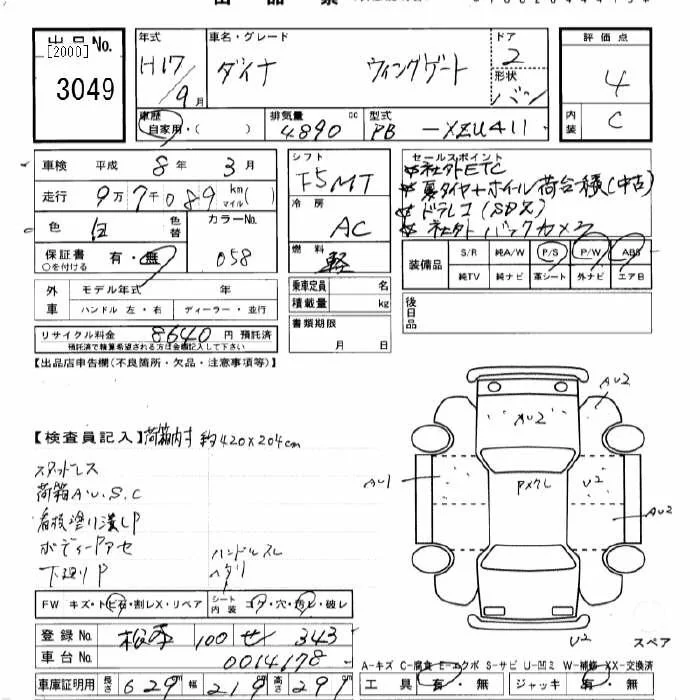 出品No.
[2000]
3049
年式
H17/9月
車名・グレード
ダイナ ウイングゲート
ドア
2
形状
バン
評価点
4
内装
C
車歴
自家用・( )
排気量
4890 cc
型式
PB-XZU411
車検 平成 8年 3月
走行 9万7千089 km マイル( )
色 白 色替
カラーNo.
058
保証書 有・無
○を付ける
シフト
F5MT
冷房
AC
燃料
軽
セールスポイント
社外ETC
夏タイヤ+ホイール荷台積(中古)
ドラレコ(SDヌ)
社外バックカメラ
装備品 S/R 純A/W P/S P/W ABS
純TV 純ナビ 革シート 外ナビ エアB
外車 モデル年式 年
ハンドル 左・右 ディーラー・並行
乗車定員 名
積載量 kg
後日品
リサイクル料金 8640 円 預託済
預託済で精算希望される方は金額記入して下さい
書類期限
月 日
【出品店申告欄(不良箇所・欠品・注意事項等)】
【検査員記入】荷箱内寸 約420×204cm
スタッドレス
荷箱A.U.S.C
看板塗り潰しP
ボディーPアセ
下廻りP
ハンドルスレ
ヘタリ
AU2
AU2
AU1
Pメクレ
U2
AU2
U2
スペア
FW キズ・トビ石・割レX・リペア
シート内装 コゲ・穴・汚レ・破レ
登録No. 松本 100 せ 343
車台No. 0014178
車庫証明用 長さ 629 幅 219 高さ 297
A-キズ C-腐食 E-エクボ S-サビ U-凹ミ W-補修 XX-交換済
工具 有・無 ジャッキ 有・無